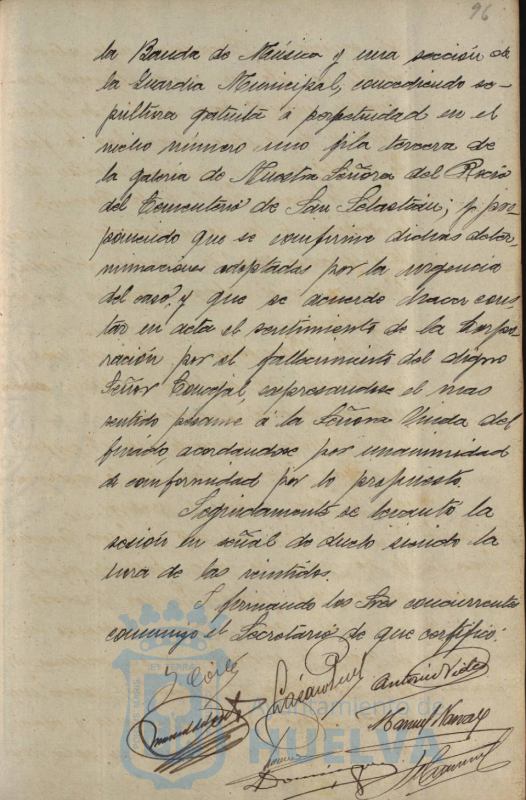 96
la Banda de Música y una sección de
la Guardia Municipal, concediendo se-
pultura gratuita a perpetuidad en el
nicho número uno fila tercera de
la galeria de Nuestra Señora del Rocio
del Cementerio de San Sebastian; y pro-
poniendo que se confirme dichas deter-
minaciones adoptadas por la urgencia
del caso, y que se acuerde hacer cons-
tar en acta el sentimiento de la Corpo-
ración por el fallecimiento del digno
Señor Concejal, expresandose el mas
sentido pesame á la Señora Viuda del
finado, acordandose por unanimidad
de conformidad por lo propuesto.
Seguidamente se levantó la
sesión en señal de duelo siendo la
hora de las veintidos.
Y firmando los Sres concurrentes
conmigo el Secretario de que certifico.
Antonio
Manuel
Dominguez
Ayuntamiento de
HUELVA